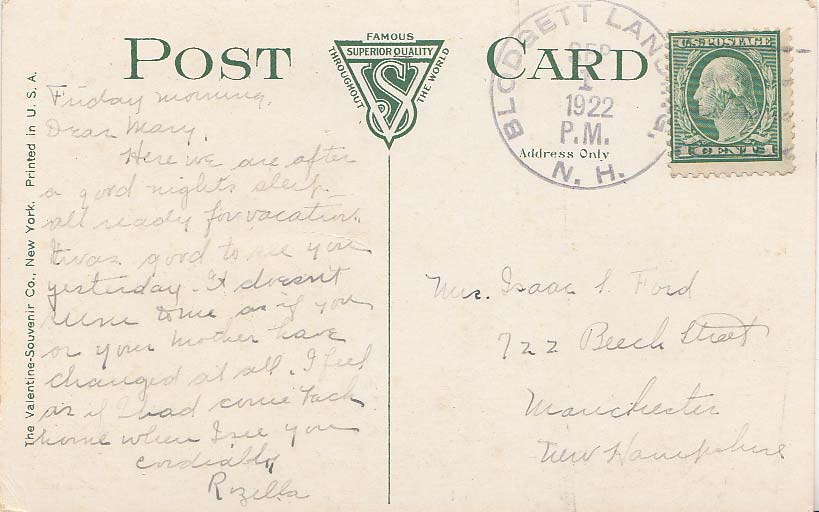 POST CARD
FAMOUS
SUPERIOR QUALITY
THROUGHOUT THE WORLD
VS
The Valentine-Souvenir Co., New York. Printed in U. S. A.
Friday morning.
Dear Mary,
Here we are after
a good nights sleep
all ready for vacation.
It was good to see you
yesterday. It doesn't
seem to me as if you
or your mother have
changed at all. I feel
as if I had come back
home when I see you
cordially
Rozella
BLODGETT LANDING,
SEP
1
1922
P.M.
N. H.
Address Only
U.S. POSTAGE
1 CENT 1
Mrs. Isaac L. Ford
722 Beech Street
Manchester
New Hampshire